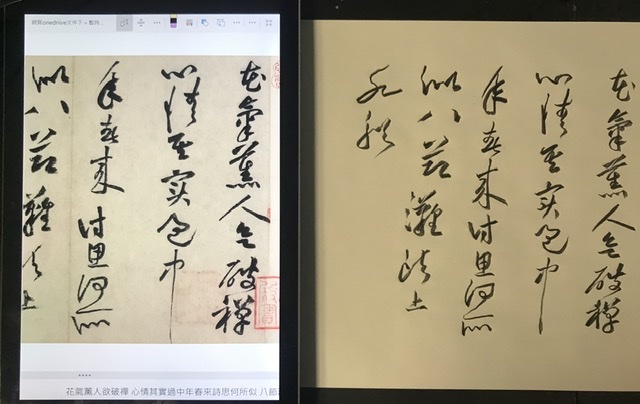 花氣薰人欲破禪
心情其實過中
年春來詩思何所
似八節灘頭上
花氣薰人欲破禪 心情其實過中年春來詩思何所似 八節
花氣薰人欲破禪
心情其實過中
年春來詩思何所
似八節灘頭上
水船